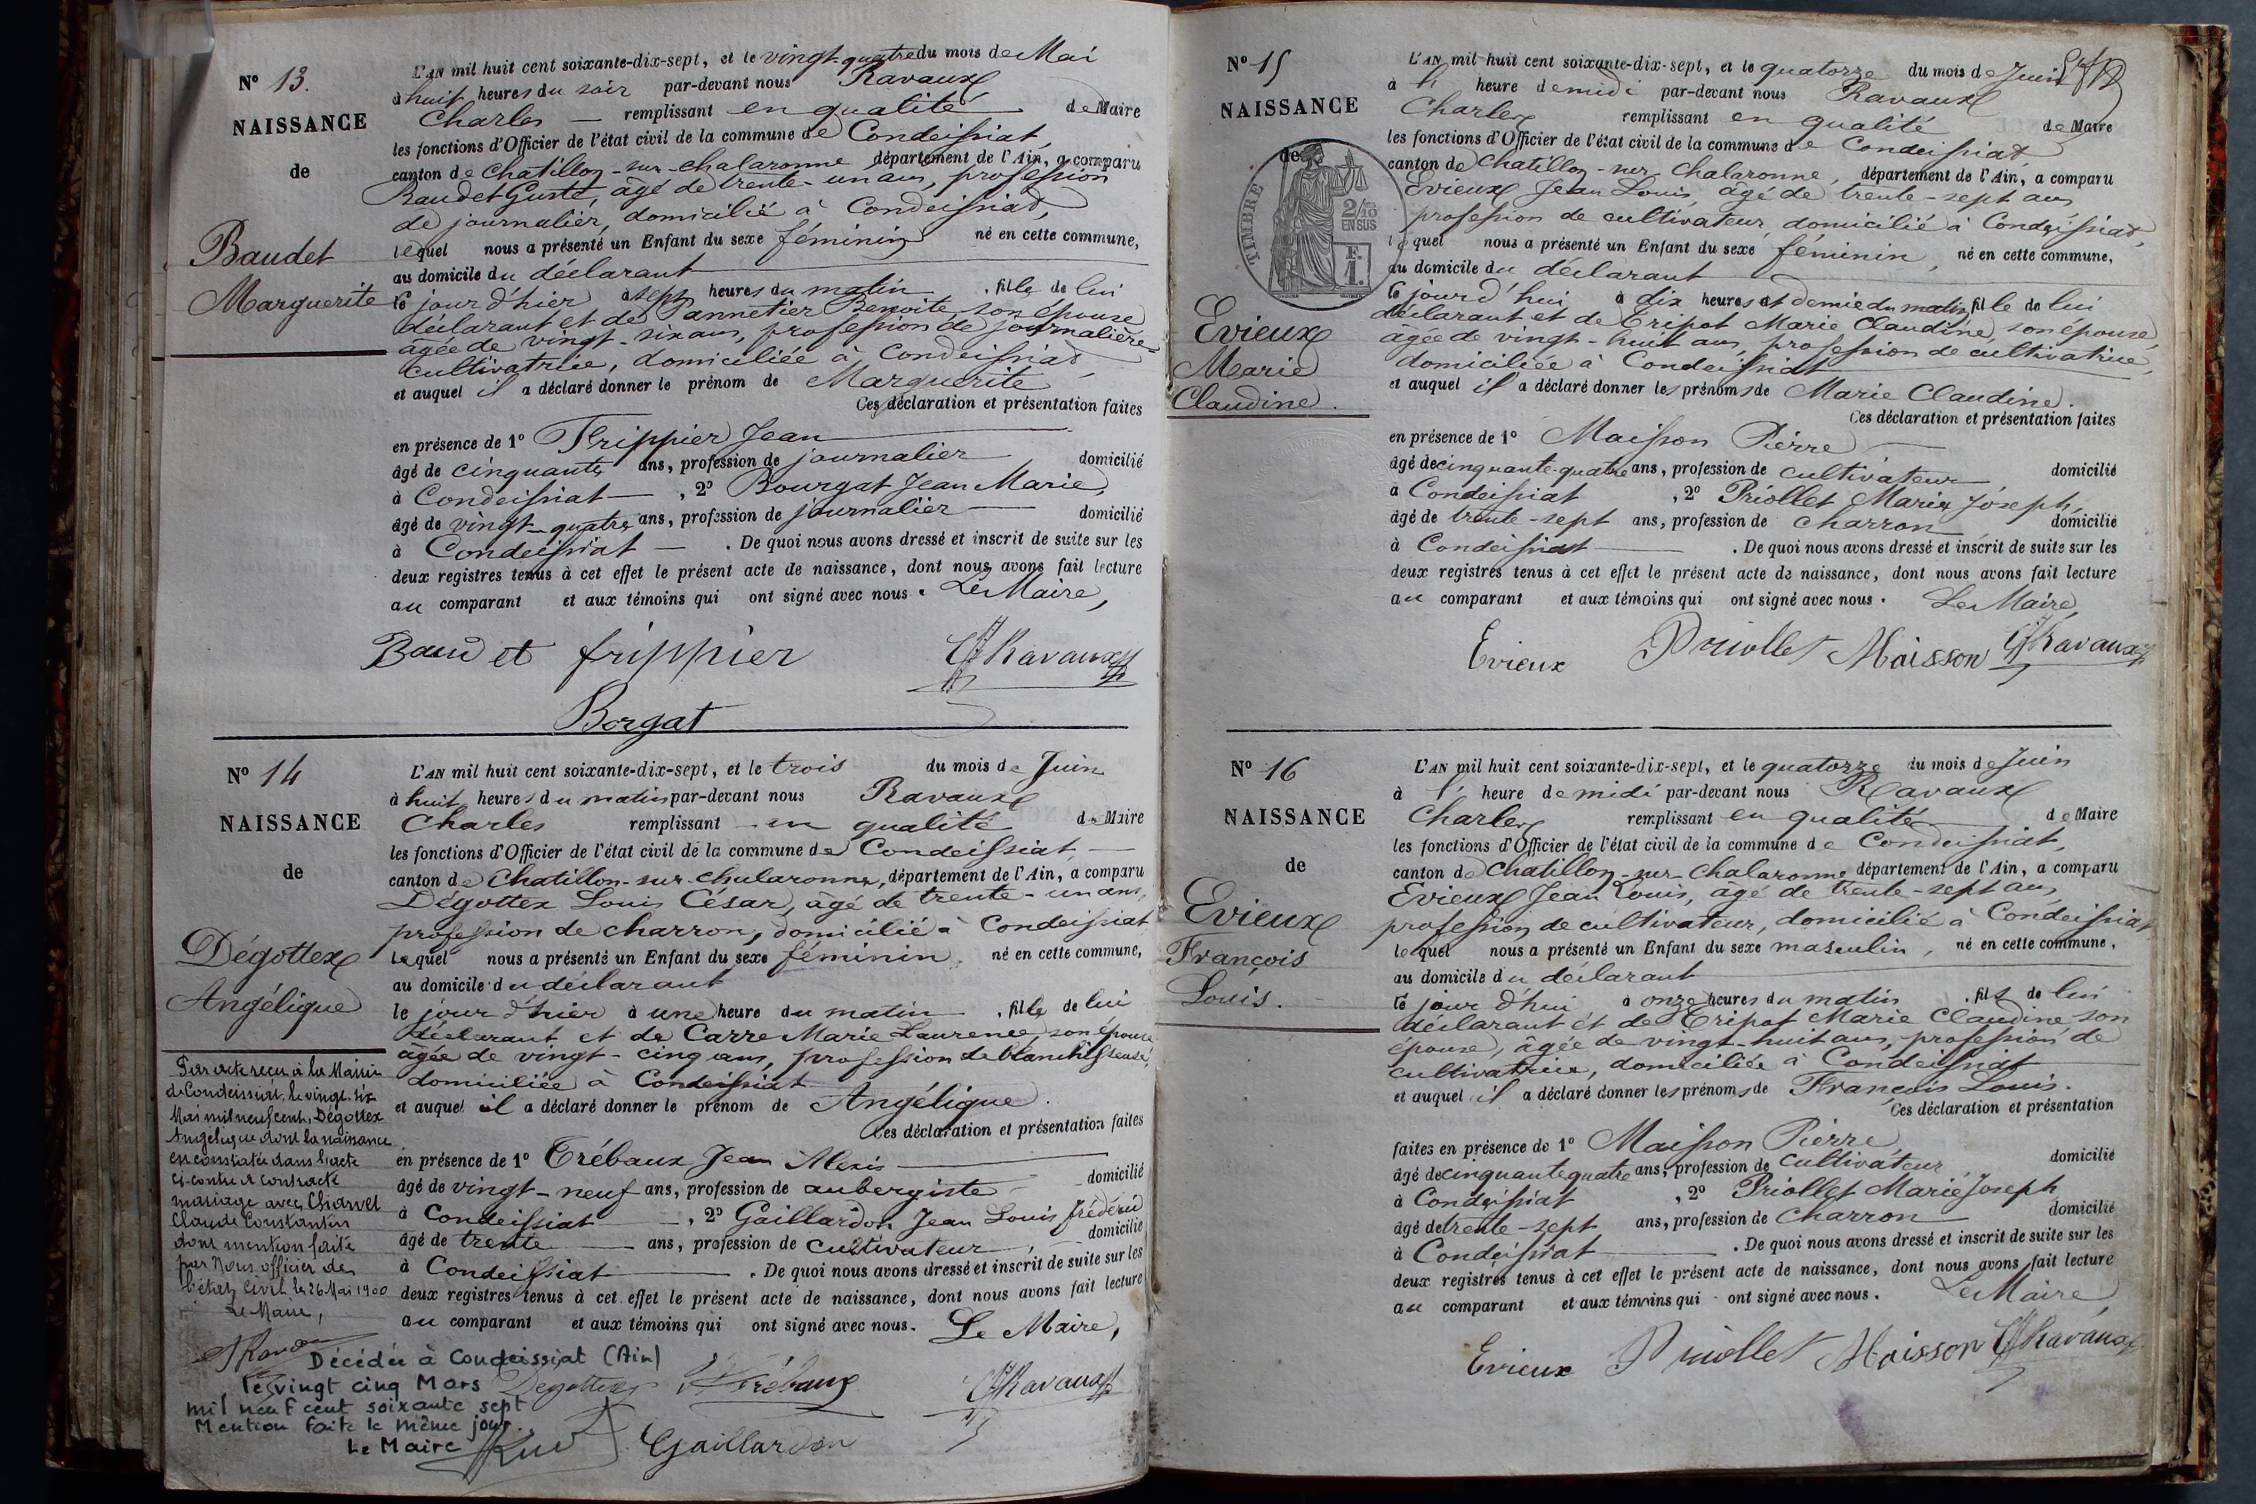 N° 13.
NAISSANCE
de
Baudet
Marguerite
L'AN mil huit cent soixante-dix-sept, et le vingt-quatre du mois de Mai
à huit heures du soir par-devant nous Ravaux
Charles — remplissant en qualité de Maire
les fonctions d'Officier de l'état civil de la commune de Condeissiat,
canton de Chatillon-sur-Chalaronne, département de l'Ain, a comparu
Baudet Guste, âgé de trente-un ans, profession
de journalier, domicilié à Condeissiat,
lequel nous a présenté un Enfant du sexe féminin né en cette commune,
au domicile du déclarant
le jour d'hier à sept heures du matin, fille de lui
déclarant et de Pannetier Benoite, son épouse
âgée de vingt-six ans, profession de journalière-
cultivatrice, domiciliée à Condeissiat,
et auquel il a déclaré donner le prénom de Marguerite
Ces déclaration et présentation faites
en présence de 1° Frippier Jean
âgé de cinquante ans, profession de journalier domicilié
à Condeissiat —, 2° Bourgat Jean Marie,
âgé de vingt-quatre ans, profession de journalier — domicilié
à Condeissiat —. De quoi nous avons dressé et inscrit de suite sur les
deux registres tenus à cet effet le présent acte de naissance, dont nous avons fait lecture
au comparant et aux témoins qui ont signé avec nous. Le Maire,
Baudet frippier Ch Ravaux
Borgat
N° 14
NAISSANCE
de
Dégottex
Angélique
L'AN mil huit cent soixante-dix-sept, et le trois du mois de Juin
à huit heures du matin par-devant nous Ravaux
Charles remplissant en qualité de Maire
les fonctions d'Officier de l'état civil de la commune de Condeissiat, —
canton de Chatillon-sur-Chalaronne, département de l'Ain, a comparu
Dégottex Louis César, âgé de trente-un ans,
profession de charron, domicilié à Condeissiat
lequel nous a présenté un Enfant du sexe féminin, né en cette commune,
au domicile du déclarant
le jour d'hier à une heure du matin, fille de lui
déclarant et de Carre Marie Laurence, son épouse
âgée de vingt-cinq ans, profession de blanchisseuse,
domiciliée à Condeissiat
et auquel il a déclaré donner le prénom de Angélique.
Ces déclaration et présentation faites
en présence de 1° Trébaux Jean Alexis —
âgé de vingt-neuf ans, profession de aubergiste domicilié
à Condeissiat —, 2° Gaillardon Jean Louis frédéric
âgé de trente — ans, profession de cultivateur, domicilié
à Condeissiat —. De quoi nous avons dressé et inscrit de suite sur les
deux registres tenus à cet effet le présent acte de naissance, dont nous avons fait lecture
au comparant et aux témoins qui ont signé avec nous. Le Maire,
Degottex Trébaux Ch Ravaux
Gaillardon
Par acte reçu à la Mairie
de Condeissiat, le vingt-six
Mai mil neuf cent, Dégottex
Angélique dont la naissance
est constatée dans l'acte
ci-contre a contracté
mariage avec Charvet
Claude Constantin
dont mention faite
par Nous officier de
l'état Civil, le 26 Mai 1900
Le Maire,
Décédée à Condeissiat (Ain)
le vingt cinq Mars
mil neuf cent soixante sept
Mention faite le même jour.
Le Maire
N° 15
NAISSANCE
de
TIMBRE
2/10
EN SUS
F.
1.
Evieux
Marie
Claudine.
L'AN mil huit cent soixante-dix-sept, et le quatorze du mois de Juin
à 1 heure de midi par-devant nous Ravaux
Charles remplissant en qualité de Maire
les fonctions d'Officier de l'état civil de la commune de Condeissiat
canton de Chatillon-sur-Chalaronne, département de l'Ain, a comparu
Evieux Jean Louis, âgé de trente-sept ans,
profession de cultivateur, domicilié à Condeissiat,
lequel nous a présenté un Enfant du sexe féminin, né en cette commune,
au domicile du déclarant
le jour d'hui à dix heures et demie du matin, fille de lui
déclarant et de Tripot Marie Claudine, son épouse,
âgée de vingt-huit ans, profession de cultivatrice,
domiciliée à Condeissiat
et auquel il a déclaré donner les prénoms de Marie Claudine.
Ces déclaration et présentation faites
en présence de 1° Maisson Pierre —
âgé de cinquante-quatre ans, profession de cultivateur domicilié
à Condeissiat, 2° Priollet Marie Joseph,
âgé de trente-sept ans, profession de charron domicilié
à Condeissiat —. De quoi nous avons dressé et inscrit de suite sur les
deux registres tenus à cet effet le présent acte de naissance, dont nous avons fait lecture
au comparant et aux témoins qui ont signé avec nous. Le Maire,
Evieux Priollet Maisson Ch Ravaux
N° 16
NAISSANCE
de
Evieux
François
Louis.
L'AN mil huit cent soixante-dix-sept, et le quatorze du mois de Juin
à 1 heure de midi par-devant nous Ravaux
Charles remplissant en qualité de Maire
les fonctions d'Officier de l'état civil de la commune de Condeissiat,
canton de Chatillon-sur-Chalaronne département de l'Ain, a comparu
Evieux Jean Louis, âgé de trente-sept ans,
profession de cultivateur, domicilié à Condeissiat,
lequel nous a présenté un Enfant du sexe masculin, né en cette commune,
au domicile du déclarant
le jour d'hui à onze heures du matin, fils de lui
déclarant et de Tripot Marie Claudine son
épouse, âgée de vingt-huit ans, profession de
cultivatrice, domiciliée à Condeissiat
et auquel il a déclaré donner les prénoms de François Louis.
Ces déclaration et présentation
faites en présence de 1° Maisson Pierre
âgé de cinquante quatre ans, profession de cultivateur domicilié
à Condeissiat, 2° Priollet Marie Joseph
âgé de trente-sept ans, profession de charron domicilié
à Condeissiat —. De quoi nous avons dressé et inscrit de suite sur les
deux registres tenus à cet effet le présent acte de naissance, dont nous avons fait lecture
au comparant et aux témoins qui ont signé avec nous. Le Maire,
Evieux Priollet Maisson Ch Ravaux